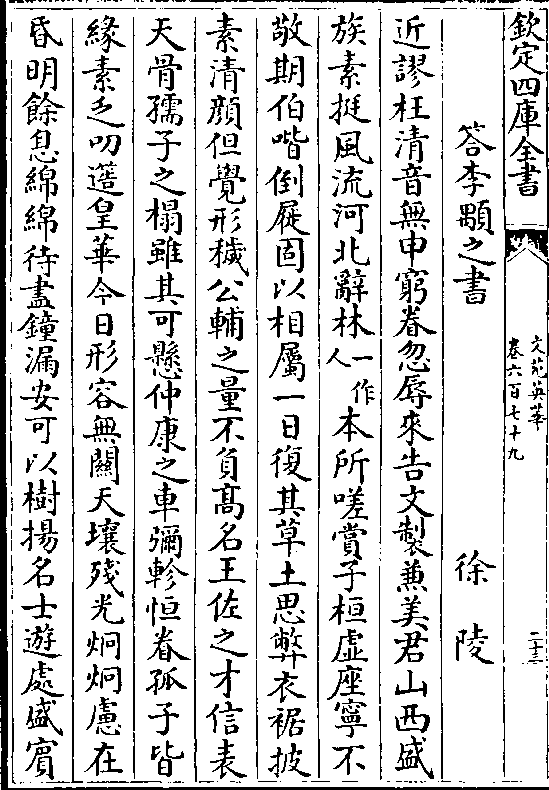 欽定四庫全書
文苑英華
卷六百七十九
二十三
答李顒之書
徐陵
近謬枉清音無申窮眷忽辱來告文製兼美君山西盛
族素挺風流河北辭林一作人本所嗟賞子桓虛座寧不
敬期伯喈倒屣固以相屬一日復其草土思弊衣裾披
素清顔但覺形穢公輔之量不負高名王佐之才信表
天骨孺子之榻雖其可懸仲康之車彌軫恒眷孤子皆
緣素乏叨薳皇華今日形容無闗天壤殘光炯炯慮在
昏明餘息綿綿待盡鐘漏安可以樹揚名士遊處盛賓